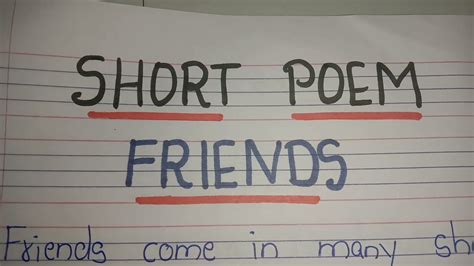 SHORT POEM
FRIENDS
Friends come in many